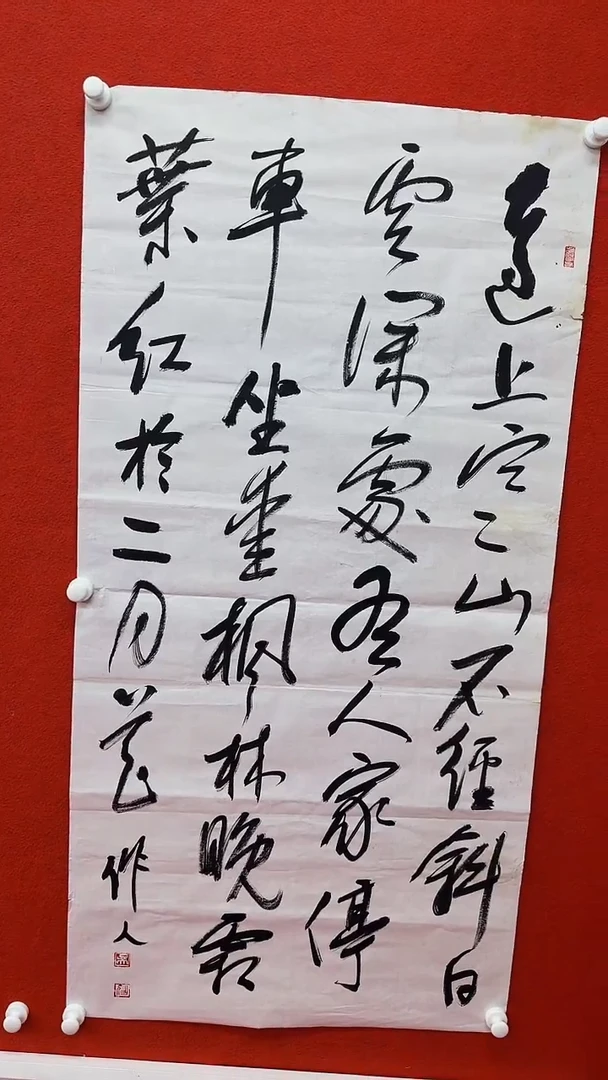 遠上寒山石經斜白
雲深處有人家停
車坐愛楓林晚霜
葉紅於二月花
作人